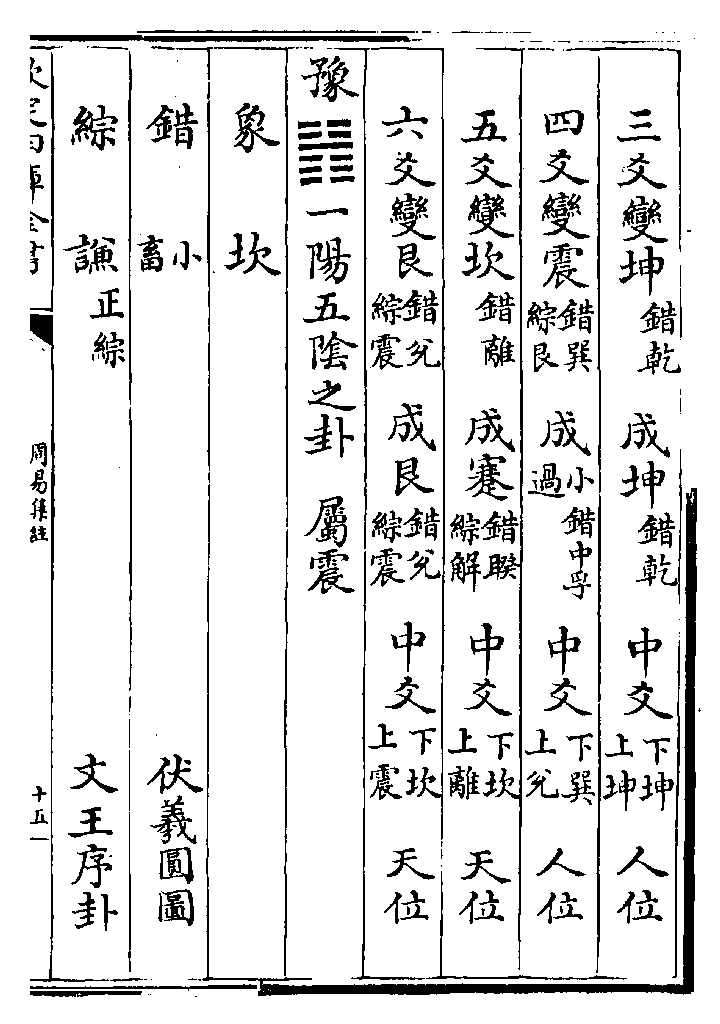 三爻變坤錯乾 成坤錯乾 中爻下坤上坤 人位
四爻變震錯巽綜艮 成小過錯中孚 中爻下巽上兌 人位
五爻變坎錯離 成蹇錯睽綜解 中爻下坎上離 天位
六爻變艮錯兌綜震 成艮錯兌綜震 中爻下坎上震 天位
豫䷏一陽五陰之卦 屬震
象 坎
錯 小畜 伏羲圓圖
綜 謙正綜 文王序卦
欽定四庫全書
周易集註
十五